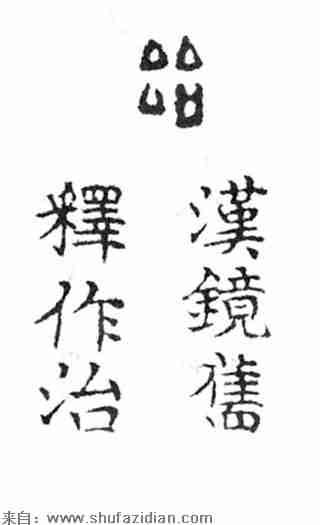 漢鏡舊
釋作治
来自：www.shufazidian.com